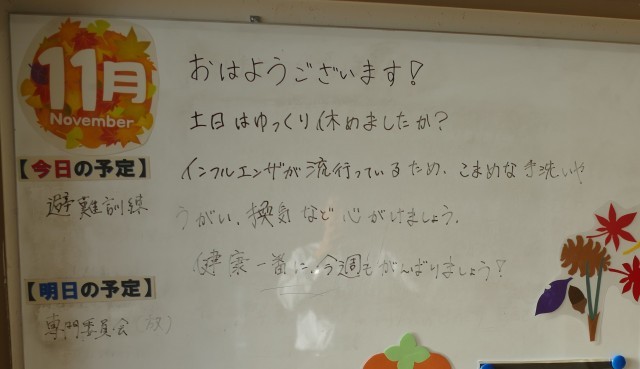 11月
November
おはようございます!
土日はゆっくり休めましたか?
【今日の予定】
インフルエンザが流行っているため、こまめな手洗いや
避難訓練
うがい、換気など心がけましょう。
健康一番に、今週もがんばりましょう!
【明日の予定】
専門委員会